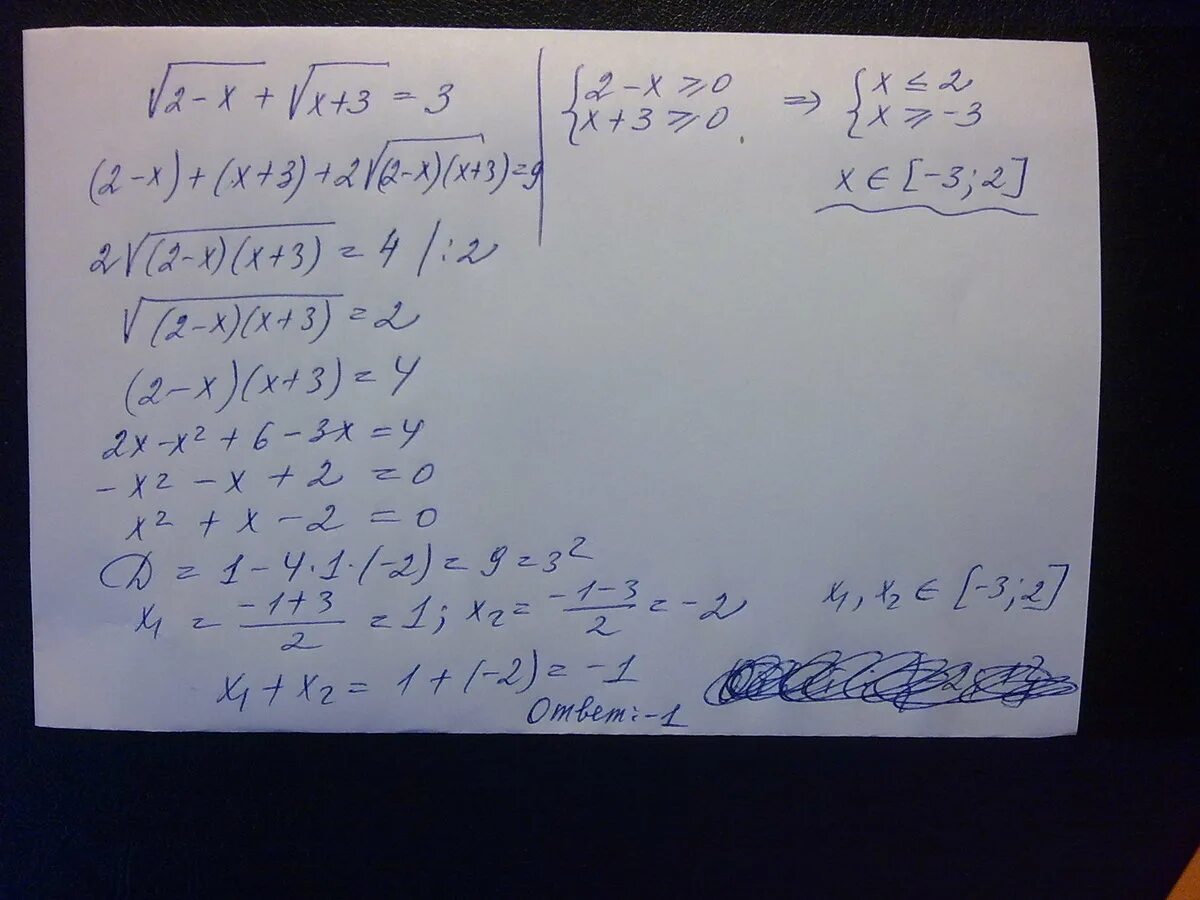 √(2-x) + √(x+3) = 3
(2-x)+(x+3)+2√((2-x)(x+3)) = 9
2√((2-x)(x+3)) = 4 / :2
√((2-x)(x+3)) = 2
(2-x)(x+3) = 4
2x-x²+6-3x = 4
-x²-x+2 = 0
x²+x-2 = 0
D = 1-4·1·(-2) = 9 = 3²
x₁ = (-1+3)/2 = 1; x₂ = (-1-3)/2 = -2
x₁+x₂ = 1+(-2) = -1
Ответ: -1
{2-x ≥ 0 ⇒ {x ≤ 2
{x+3 ≥ 0, {x ≥ -3
x ∈ [-3; 2]
x₁, x₂ ∈ [-3; 2]